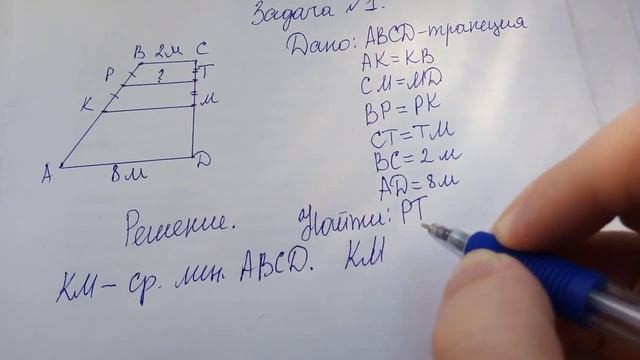 Задача №1.
Дано: ABCD-трапеция
AK=KB
CM=MD
BP=PK
CT=TM
BC=2м
AD=8м
Найти: PT
B 2м C
P ? T
K M
A 8м D
Решение.
KM- ср. лин. ABCD. KM